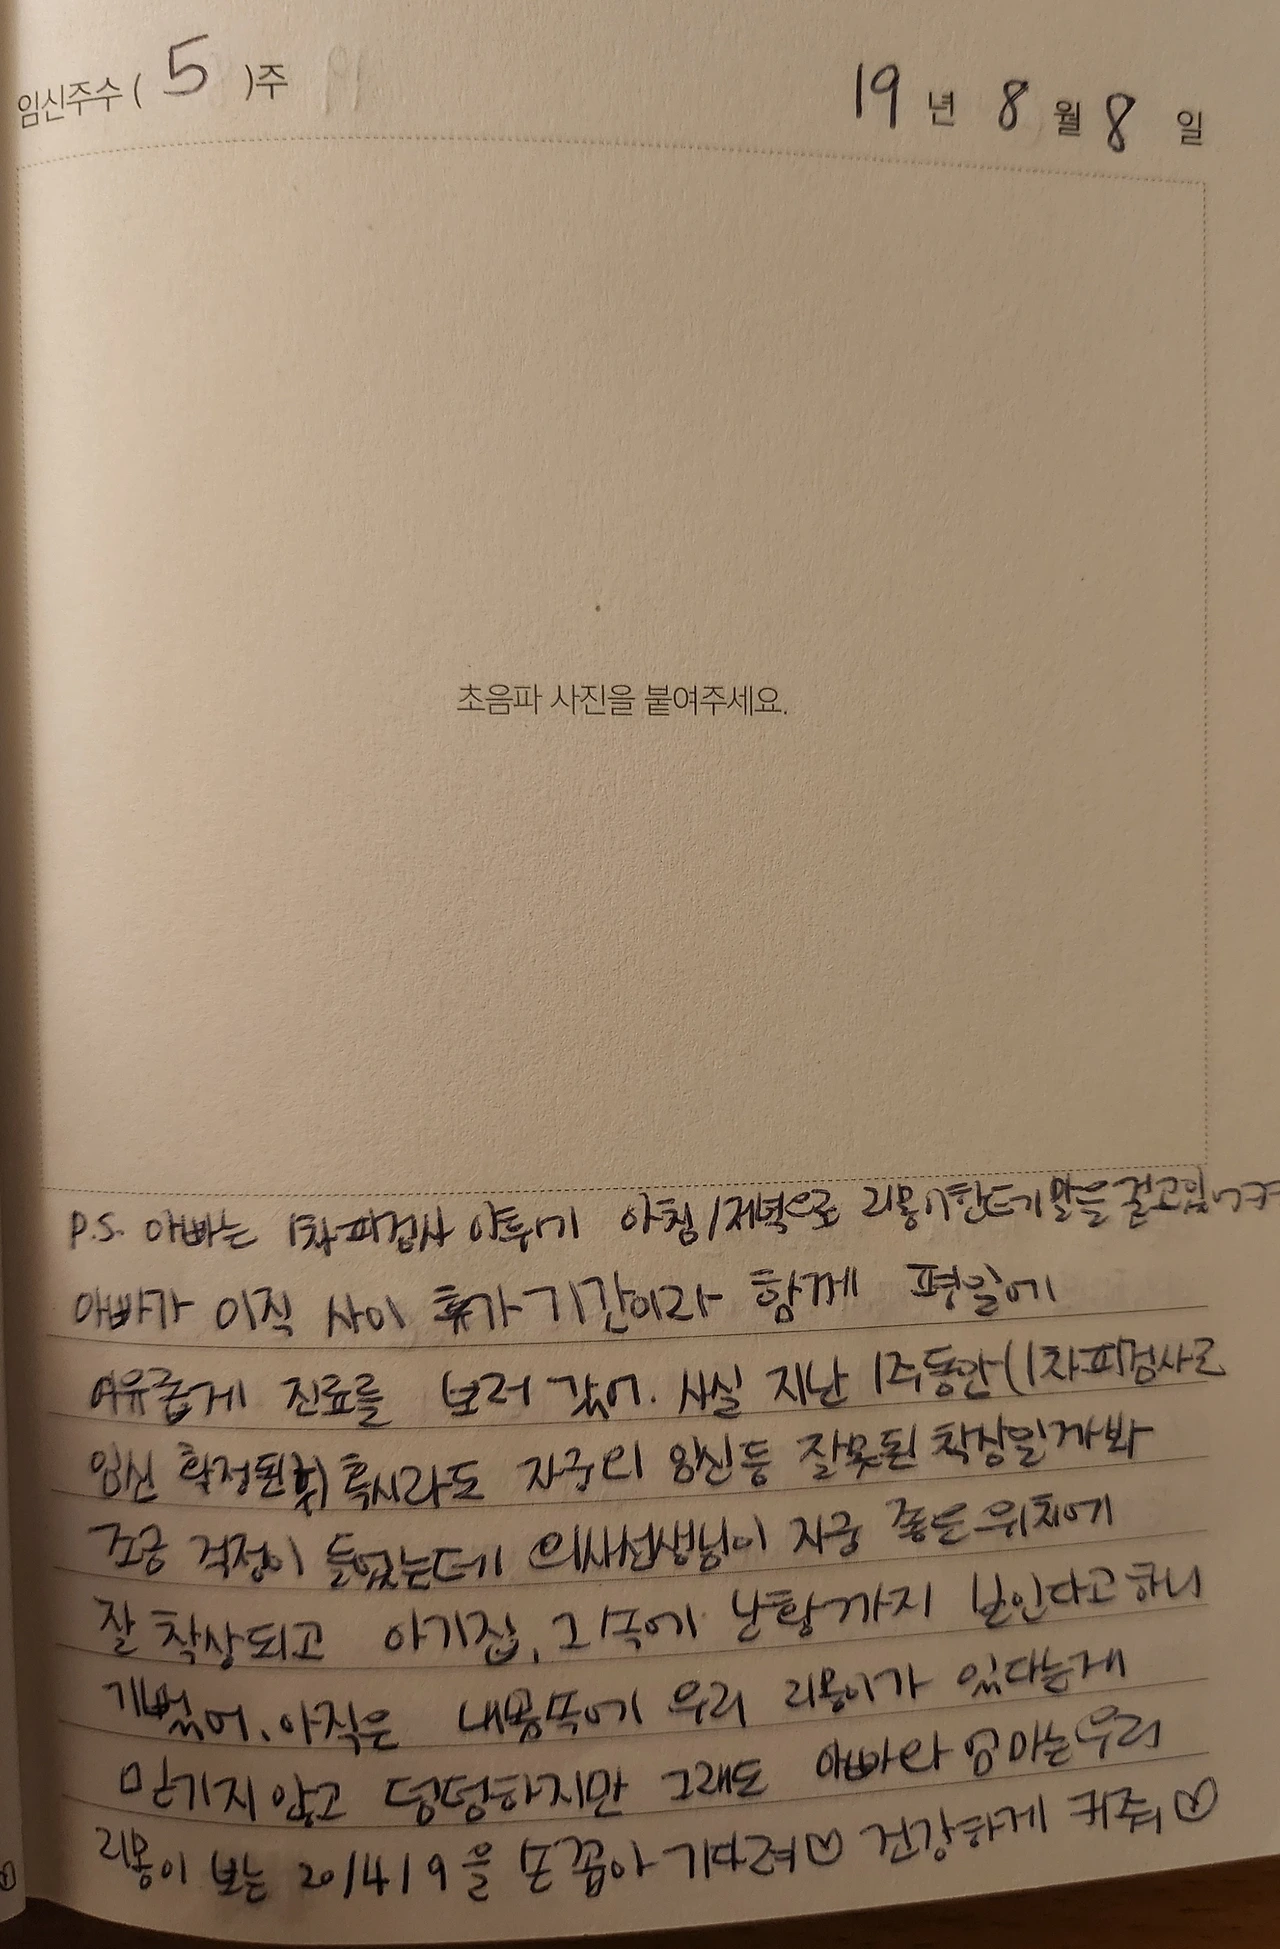 임신주수 ( 5 )주
19 년 8 월 8 일
초음파 사진을 붙여주세요.
P.S. 아빠는 1차피검사 이후 아침/저녁으로 리몽이한테 말을 걸고있
아빠가 이직 사이 휴가기간이라 함께 평일에
여유롭게 진료를 보러 갔어. 사실 지난 1주동안(1차피검사로
임신 확정된 후) 혹시라도 자궁외 임신등 잘못된 착상일까봐
조금 걱정이 들었는데 의사선생님이 자궁 좋은 위치에
잘 착상되고 아기집, 그 속에 난황까지 보인다고 하니
기뻤어. 아직은 내몸속에 우리 리몽이가 있다는게
믿기지 않고 덩덩하지만 그래도 아빠와 엄마는 우리
리몽이 보는 20/4/9 을 손꼽아 기다려♡ 건강하게 커줘♡